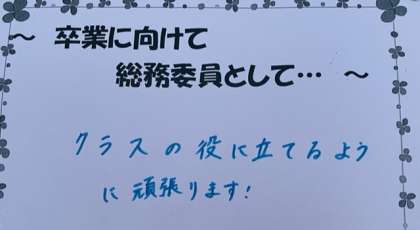 ～ 卒業に向けて
総務委員として… ～
クラスの役に立てるよう
に頑張ります!